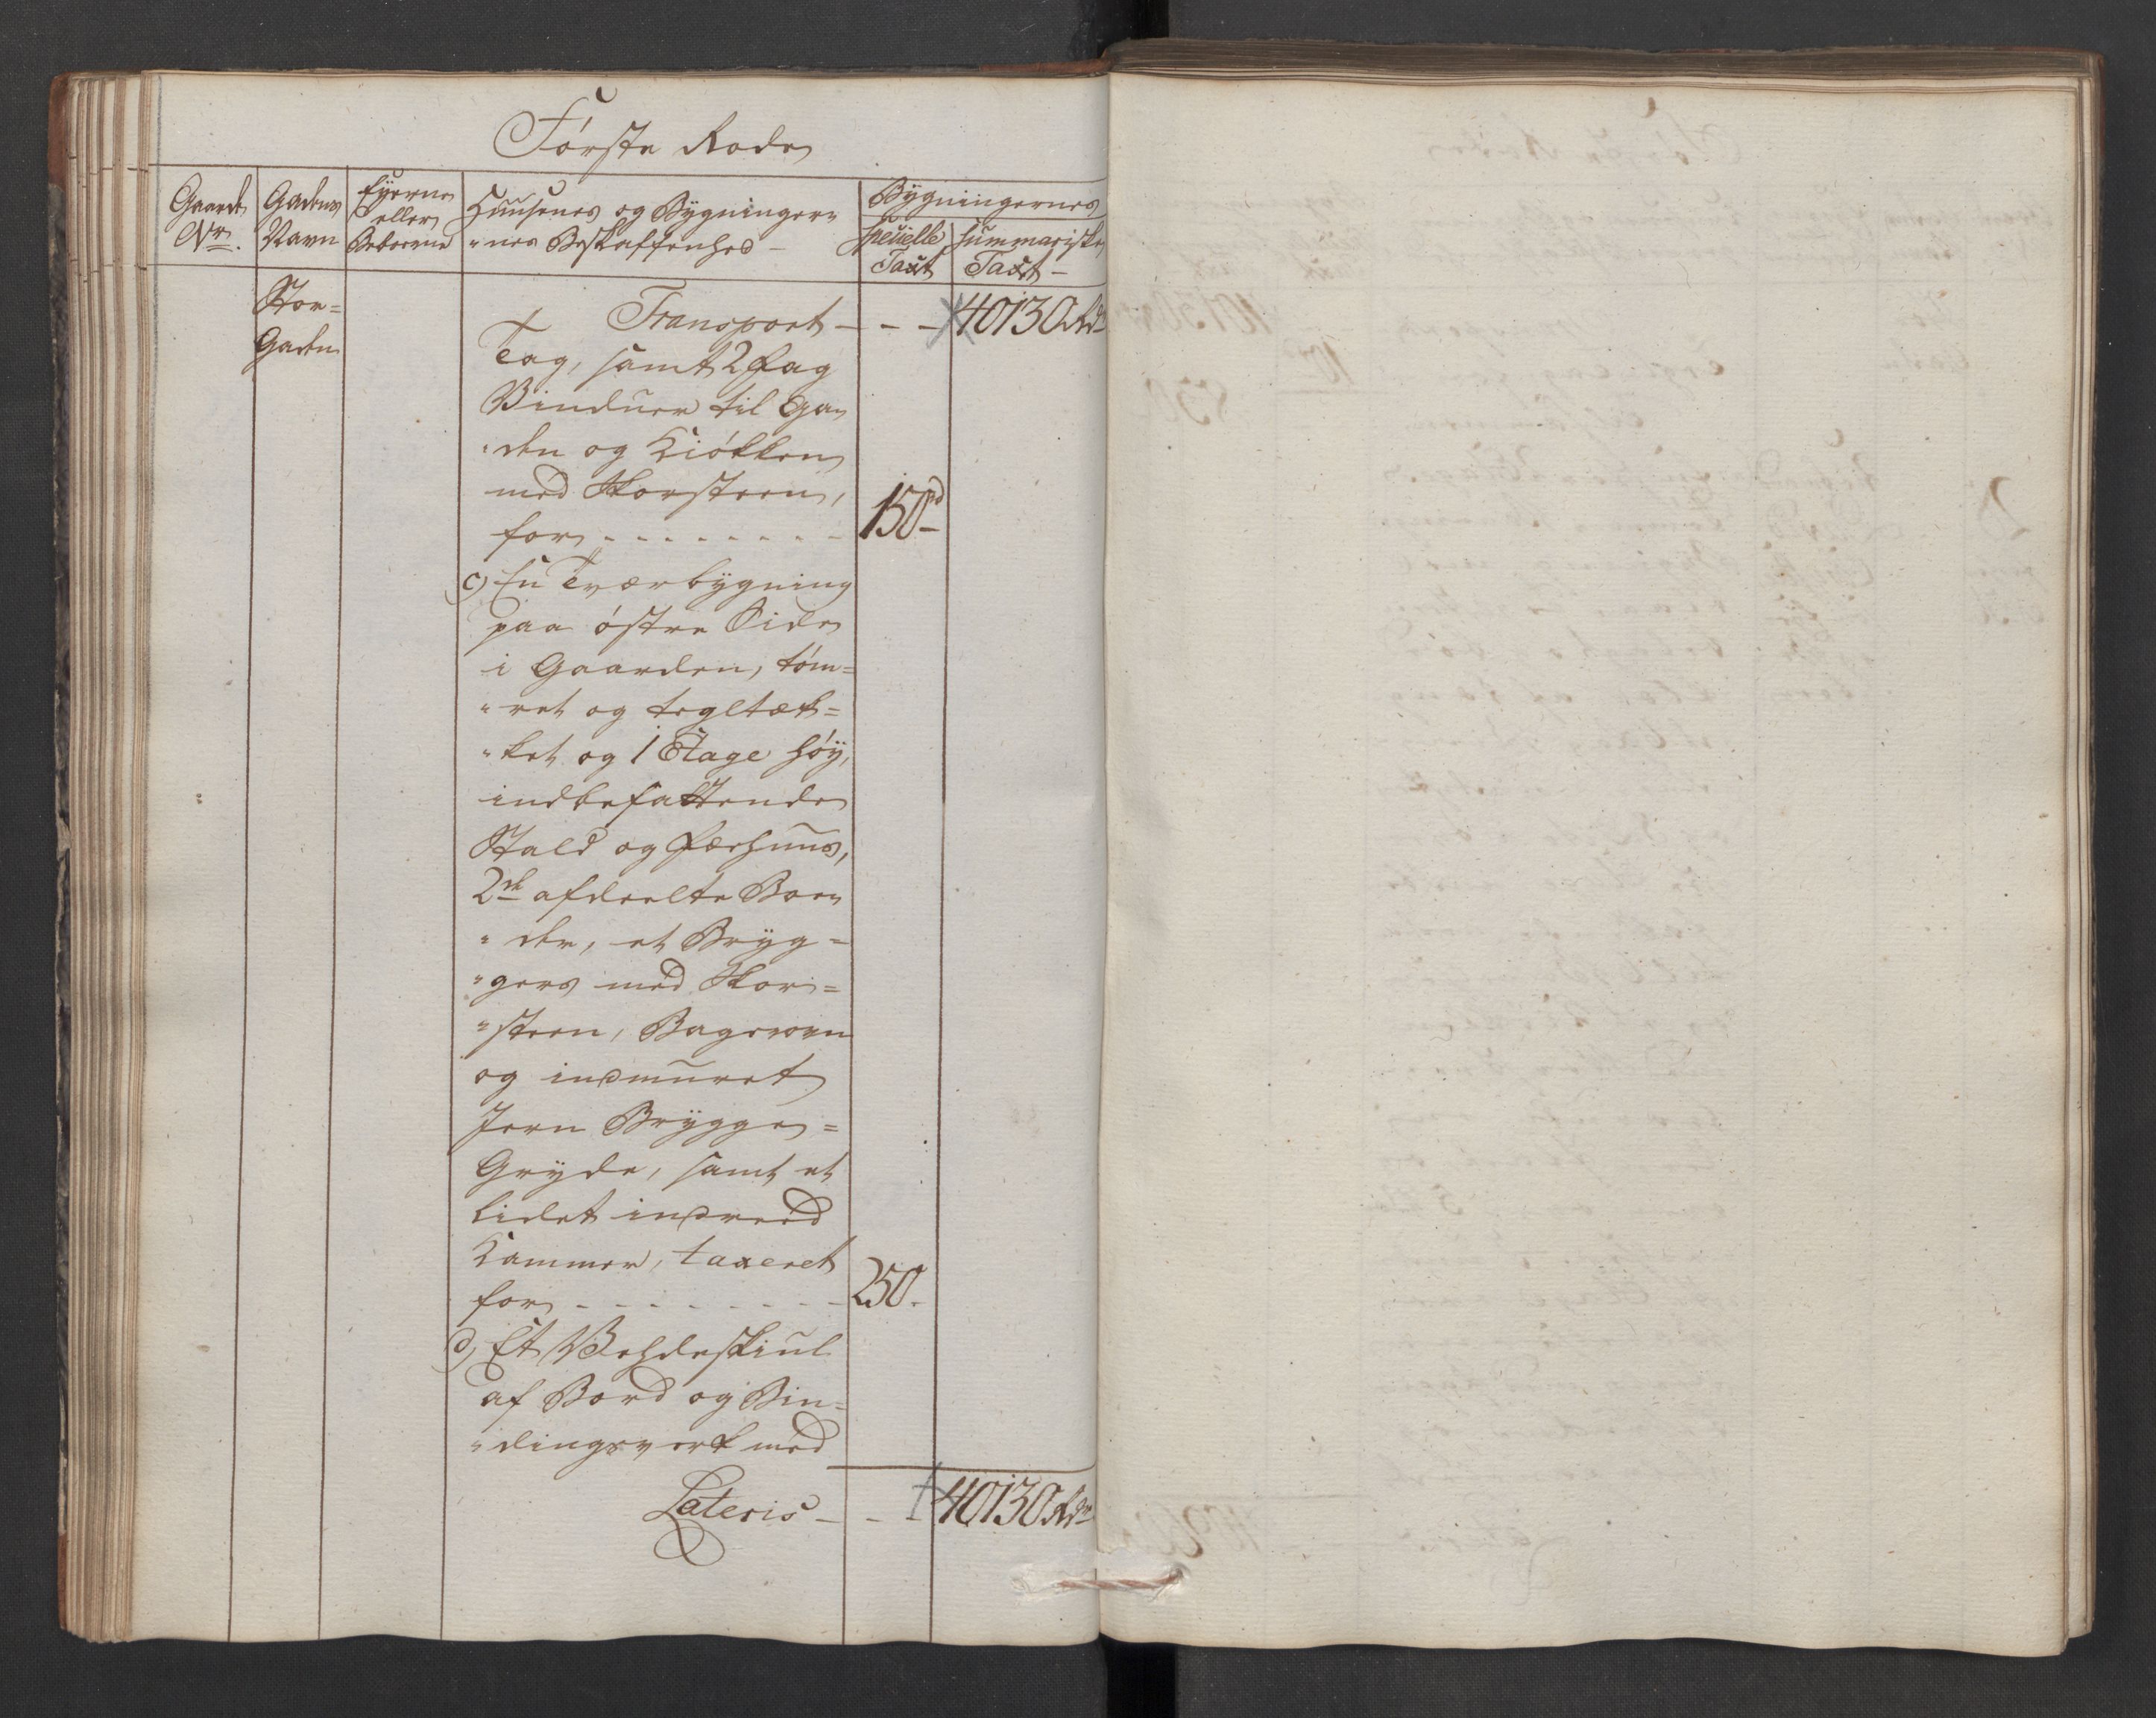 Første Rode
Gaards Nr. | Gadens Navn | Eyerne eller Beboerne | Huusenes og Bygninger=
"nes Beskaffenhed - | Bygningernes
specielle Taxt | summariske Taxt -
Stor=
Gaden
Transport - - - 40130 Rdr
Tag, samt 2 Fag
Vinduer til Ga=
"den og Kiøkken
med Skorsteen,
for - - - - - - - - 150rd -
c) En Tværbygning
paa østre Side
i Gaarden, tøm=
"ret og tegltæk=
"ket og 1 Etage høÿ,
indbefattende
Stald og Fæehuus,
2de afdeelte Boe=
"der, et Brÿg=
"gers med Skor=
"steen, Bagerovn
og indmuret
Jern Brÿgge=
Grÿde, samt et
lidet indreed
Kammer, taxeret
for - - - - - - - - 250.
d) Et Vehdeskiul
af Bord og Bin=
"dingsverk med
Lateris - - 40130 Rdr